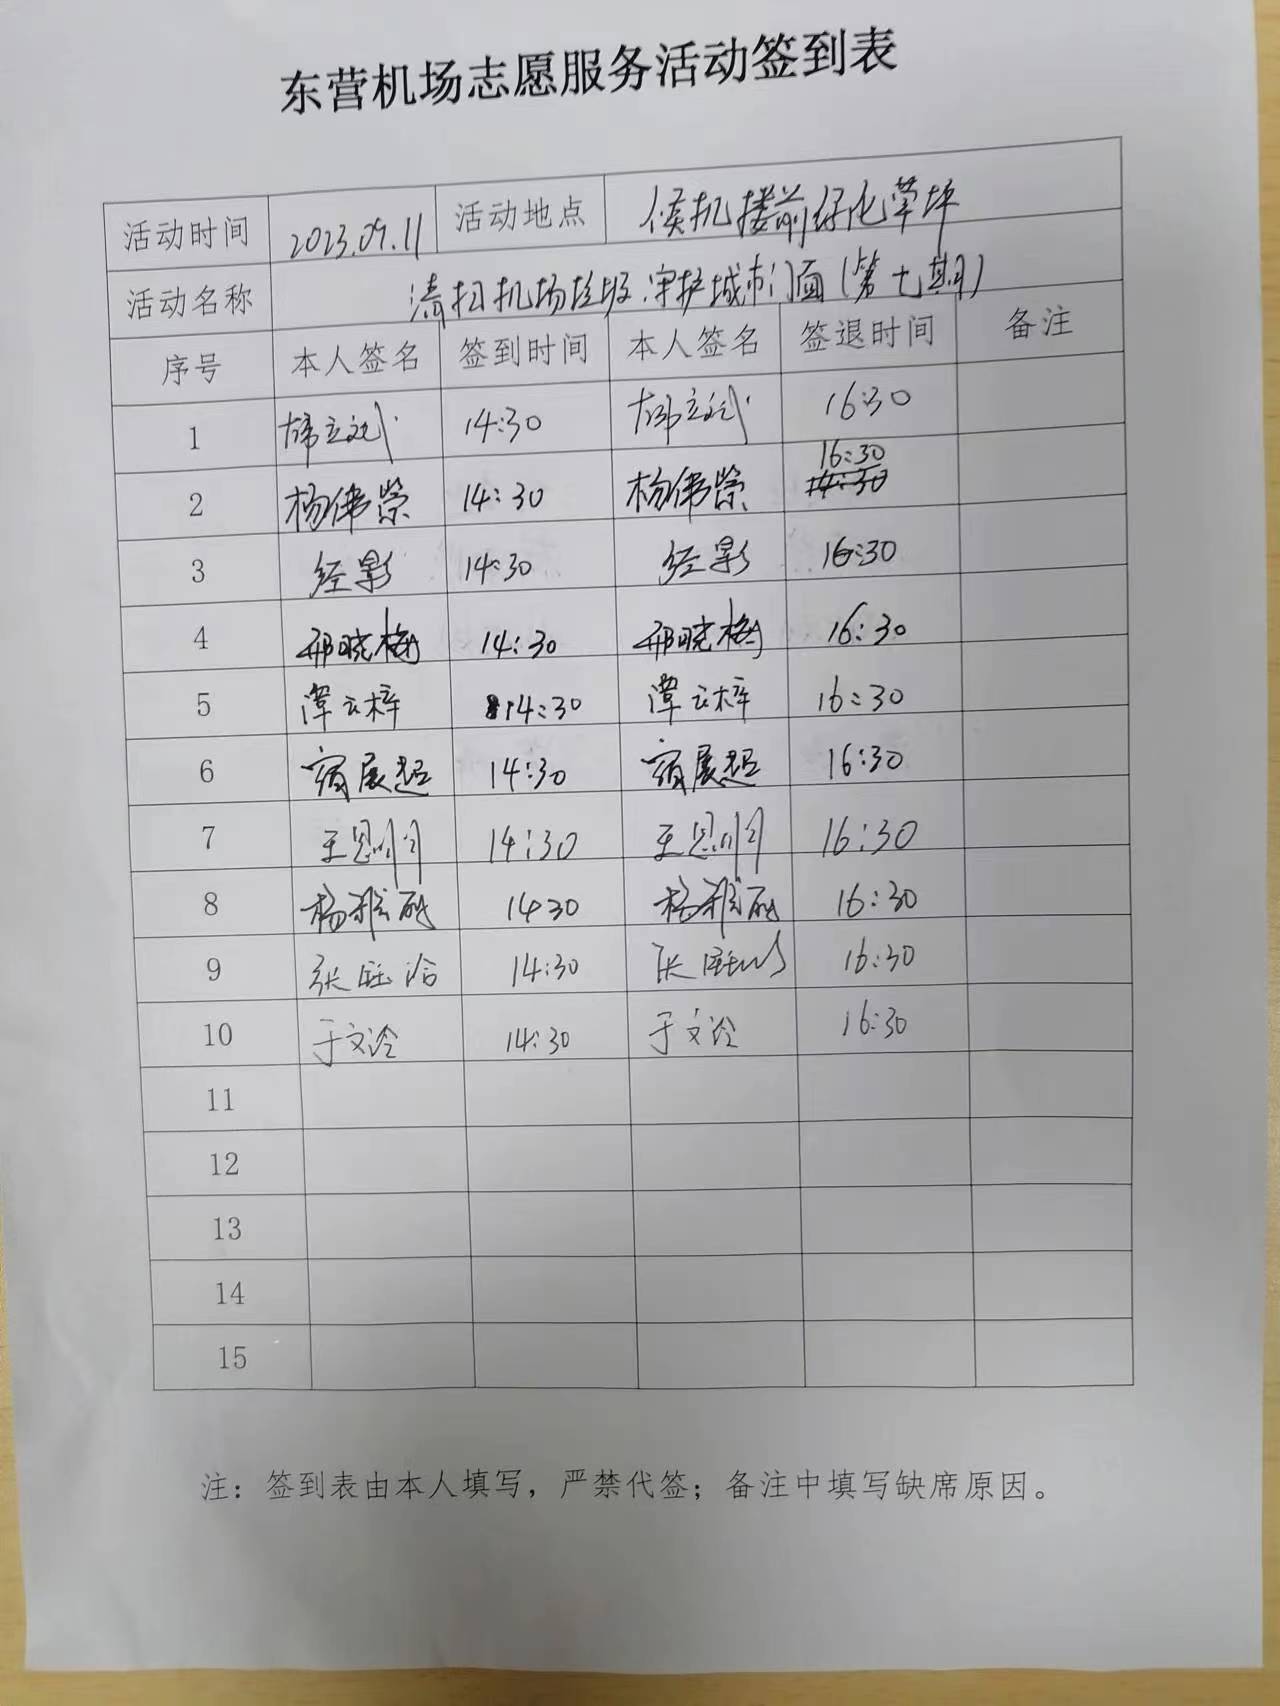 东营机场志愿服务活动签到表
活动时间 2023.09.11 活动地点 候机楼前绿化草坪
活动名称 清扫机场垃圾.守护城市门面(第七期)
序号 本人签名 签到时间 本人签名 签退时间 备注
1 14:30 16:30
2 杨伟荣 14:30 杨伟荣 16:30
3 经影 14:30 经影 16:30
4 邢晓梅 14:30 邢晓梅 16:30
5 潭云梓 14:30 潭云梓 16:30
6 宿展超 14:30 宿展超 16:30
7 王思明 14:30 王思明 16:30
8 14:30 16:30
9 14:30 16:30
10 于文泠 14:30 于文泠 16:30
11
12
13
14
15
注：签到表由本人填写，严禁代签；备注中填写缺席原因。